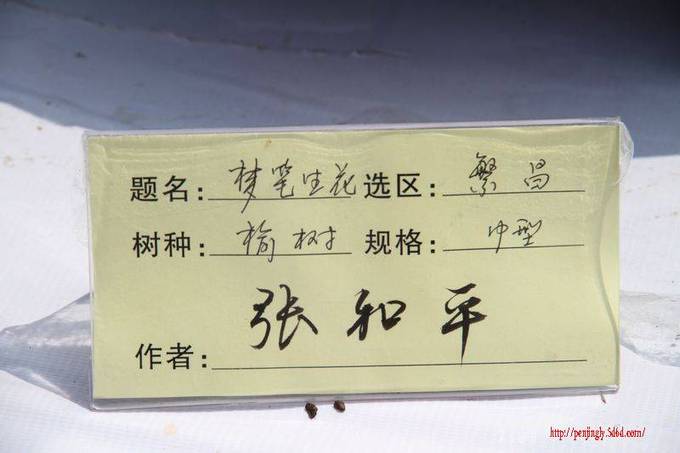 题名：梦笔生花 选区：繁昌
树种：榆树 规格：中型
作者：张和平
http://penjingly.5d6d.com/